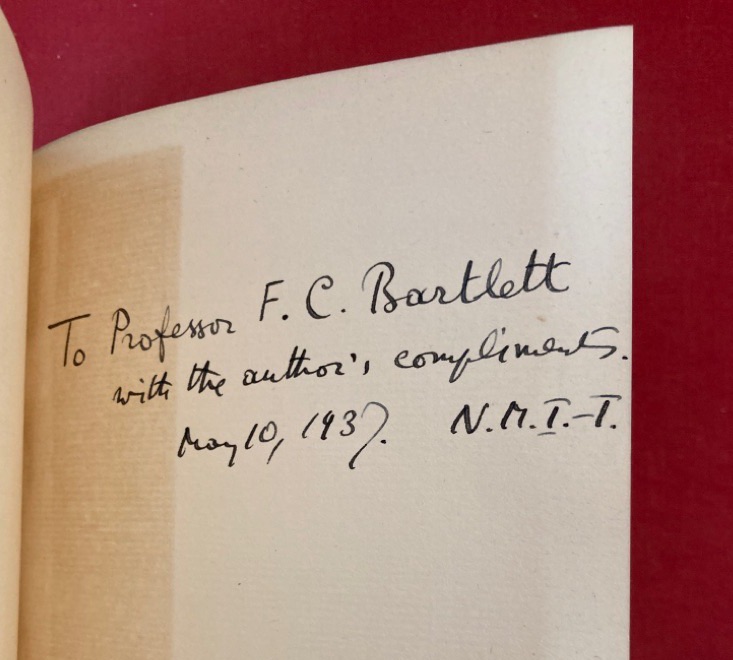 To Professor F. C. Bartlett
with the author's compliments.
May 10, 1937. N.M.I.-T.